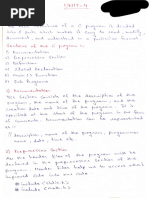 UNIT-4
The basic structure of a C program is divided
into 6 parts which makes it easy to read, modify,
document, and understand in a particular format.
Sections of the C program :-
1) Documentation
2) Preprocessor Section
3) Definition
4) Global Declaration
5) Main () Function
6) Sub Programs
1) Documentation
This section consists of the description of the
program, the name of the program, and the
creation date and time of the program. It is
specified at the start of the program in the form
of comments. Documentation can be represented
as :-
// description, name of the program, programmer
name, date, time etc.
2) Preprocessor Section
All the header files of the program will be
declared in the preprocessor section of the
program. Header files help us to access other's
improved code into our code.
#include <stdio.h>
#include <math.h>